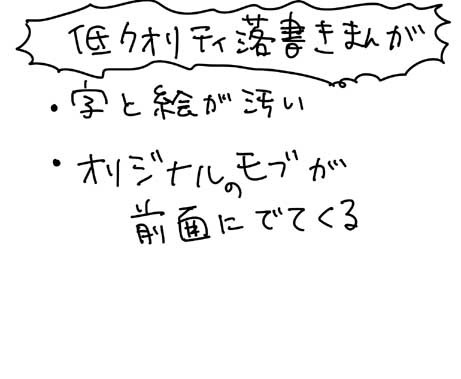 低クオリティ落書きまんが
・字と絵が汚い
・オリジナルのモブが
前面にでてくる